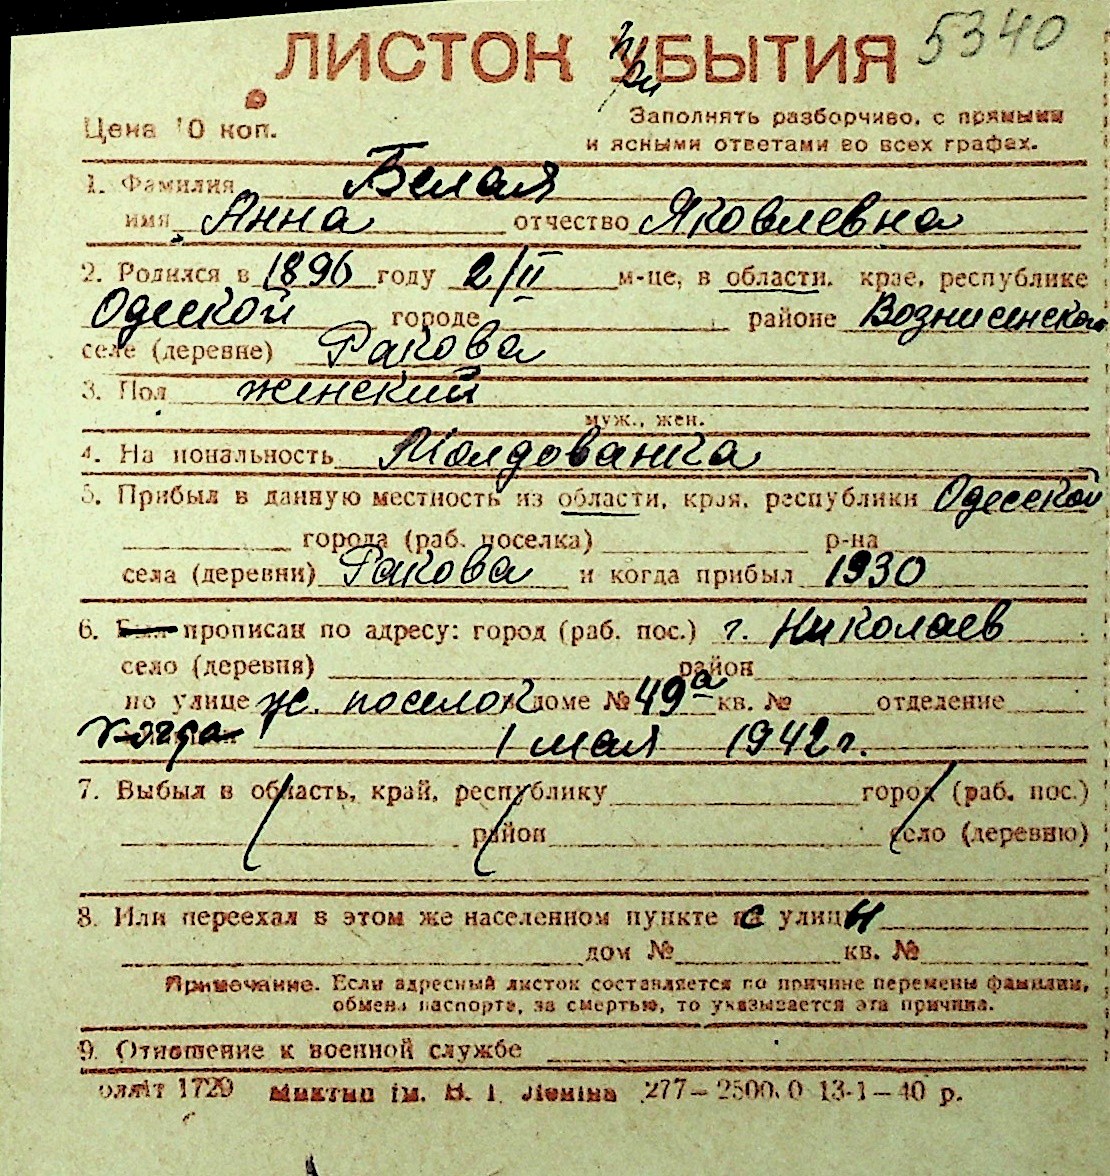 5340
ЛИСТОК УБЫТИЯ
При
Цена 10 коп.
Заполнять разборчиво, с прямыми
и ясными ответами во всех графах.
1. Фамилия Белая
имя Анна отчество Яковлевна
2. Родился в 1896 году 2/II м-це, в области, крае, республике
Одеской городе районе Вознисенском
селе (деревне) Ракова
3. Пол женский
муж., жен.
4. Национальность Молдованка
5. Прибыл в данную местность из области, края, республики Одесской
города (раб. поселка) р-на
села (деревни) Ракова и когда прибыл 1930
6. Был прописан по адресу: город (раб. пос.) г. Николаев
село (деревня) район
по улице ж. поселок в доме № 49а кв. № отделение
когда 1 мая 1942 г.
7. Выбыл в область, край, республику город (раб. пос.)
район село (деревню)
8. Или переехал в этом же населенном пункте с улицы
дом № кв. №
Примечание. Если адресный листок составляется по причине перемены фамилии,
обмена паспорта, за смертью, то указывается эта причина.
9. Отношение к военной службе
1720 ім. В. І. Леніна 277—2500.0 13-1—40 р.